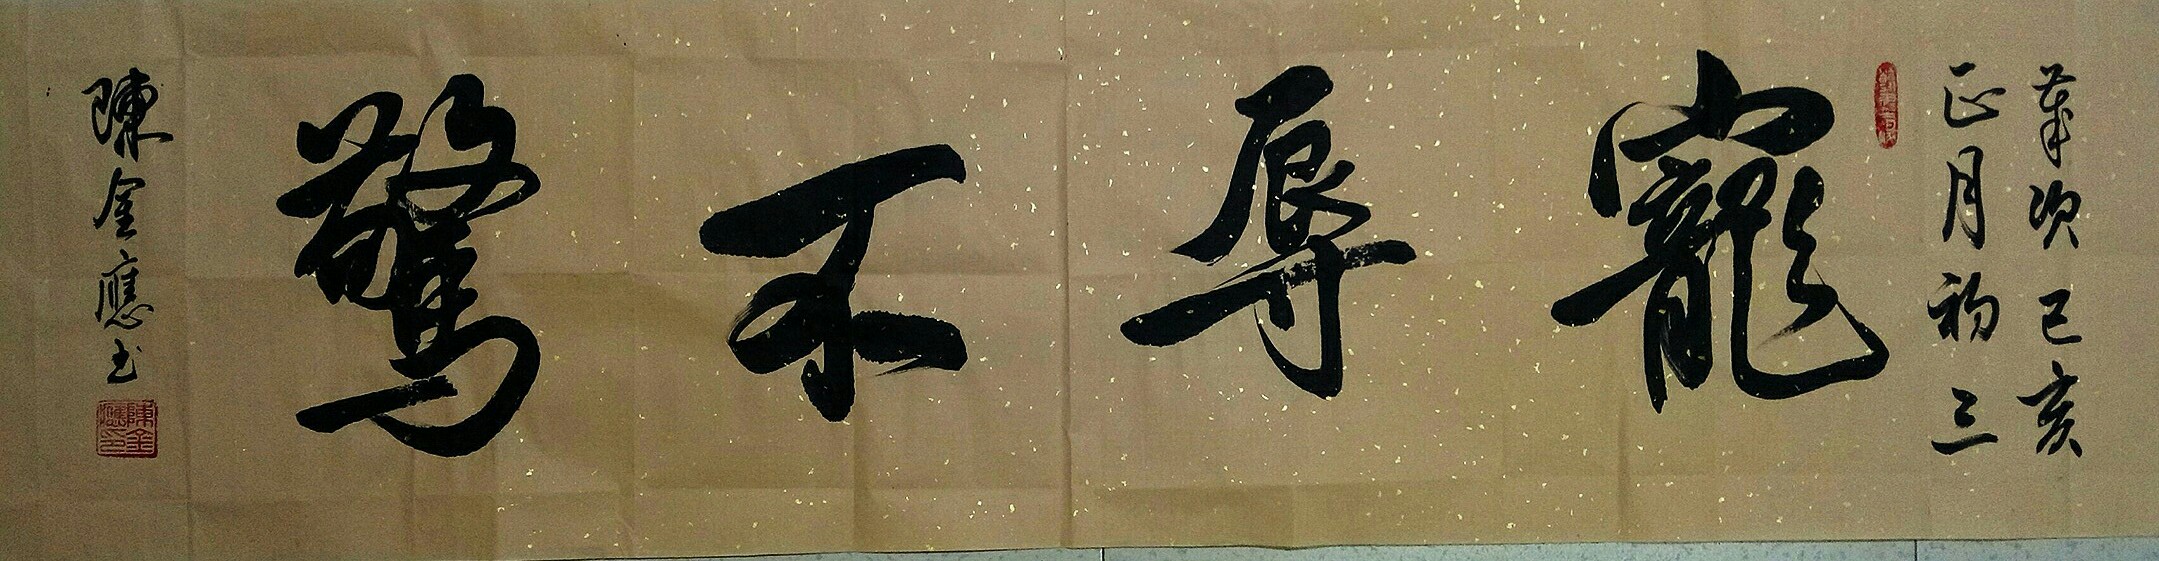 歲次己亥
正月初三
寵辱不驚
陳金應书
陳金應印